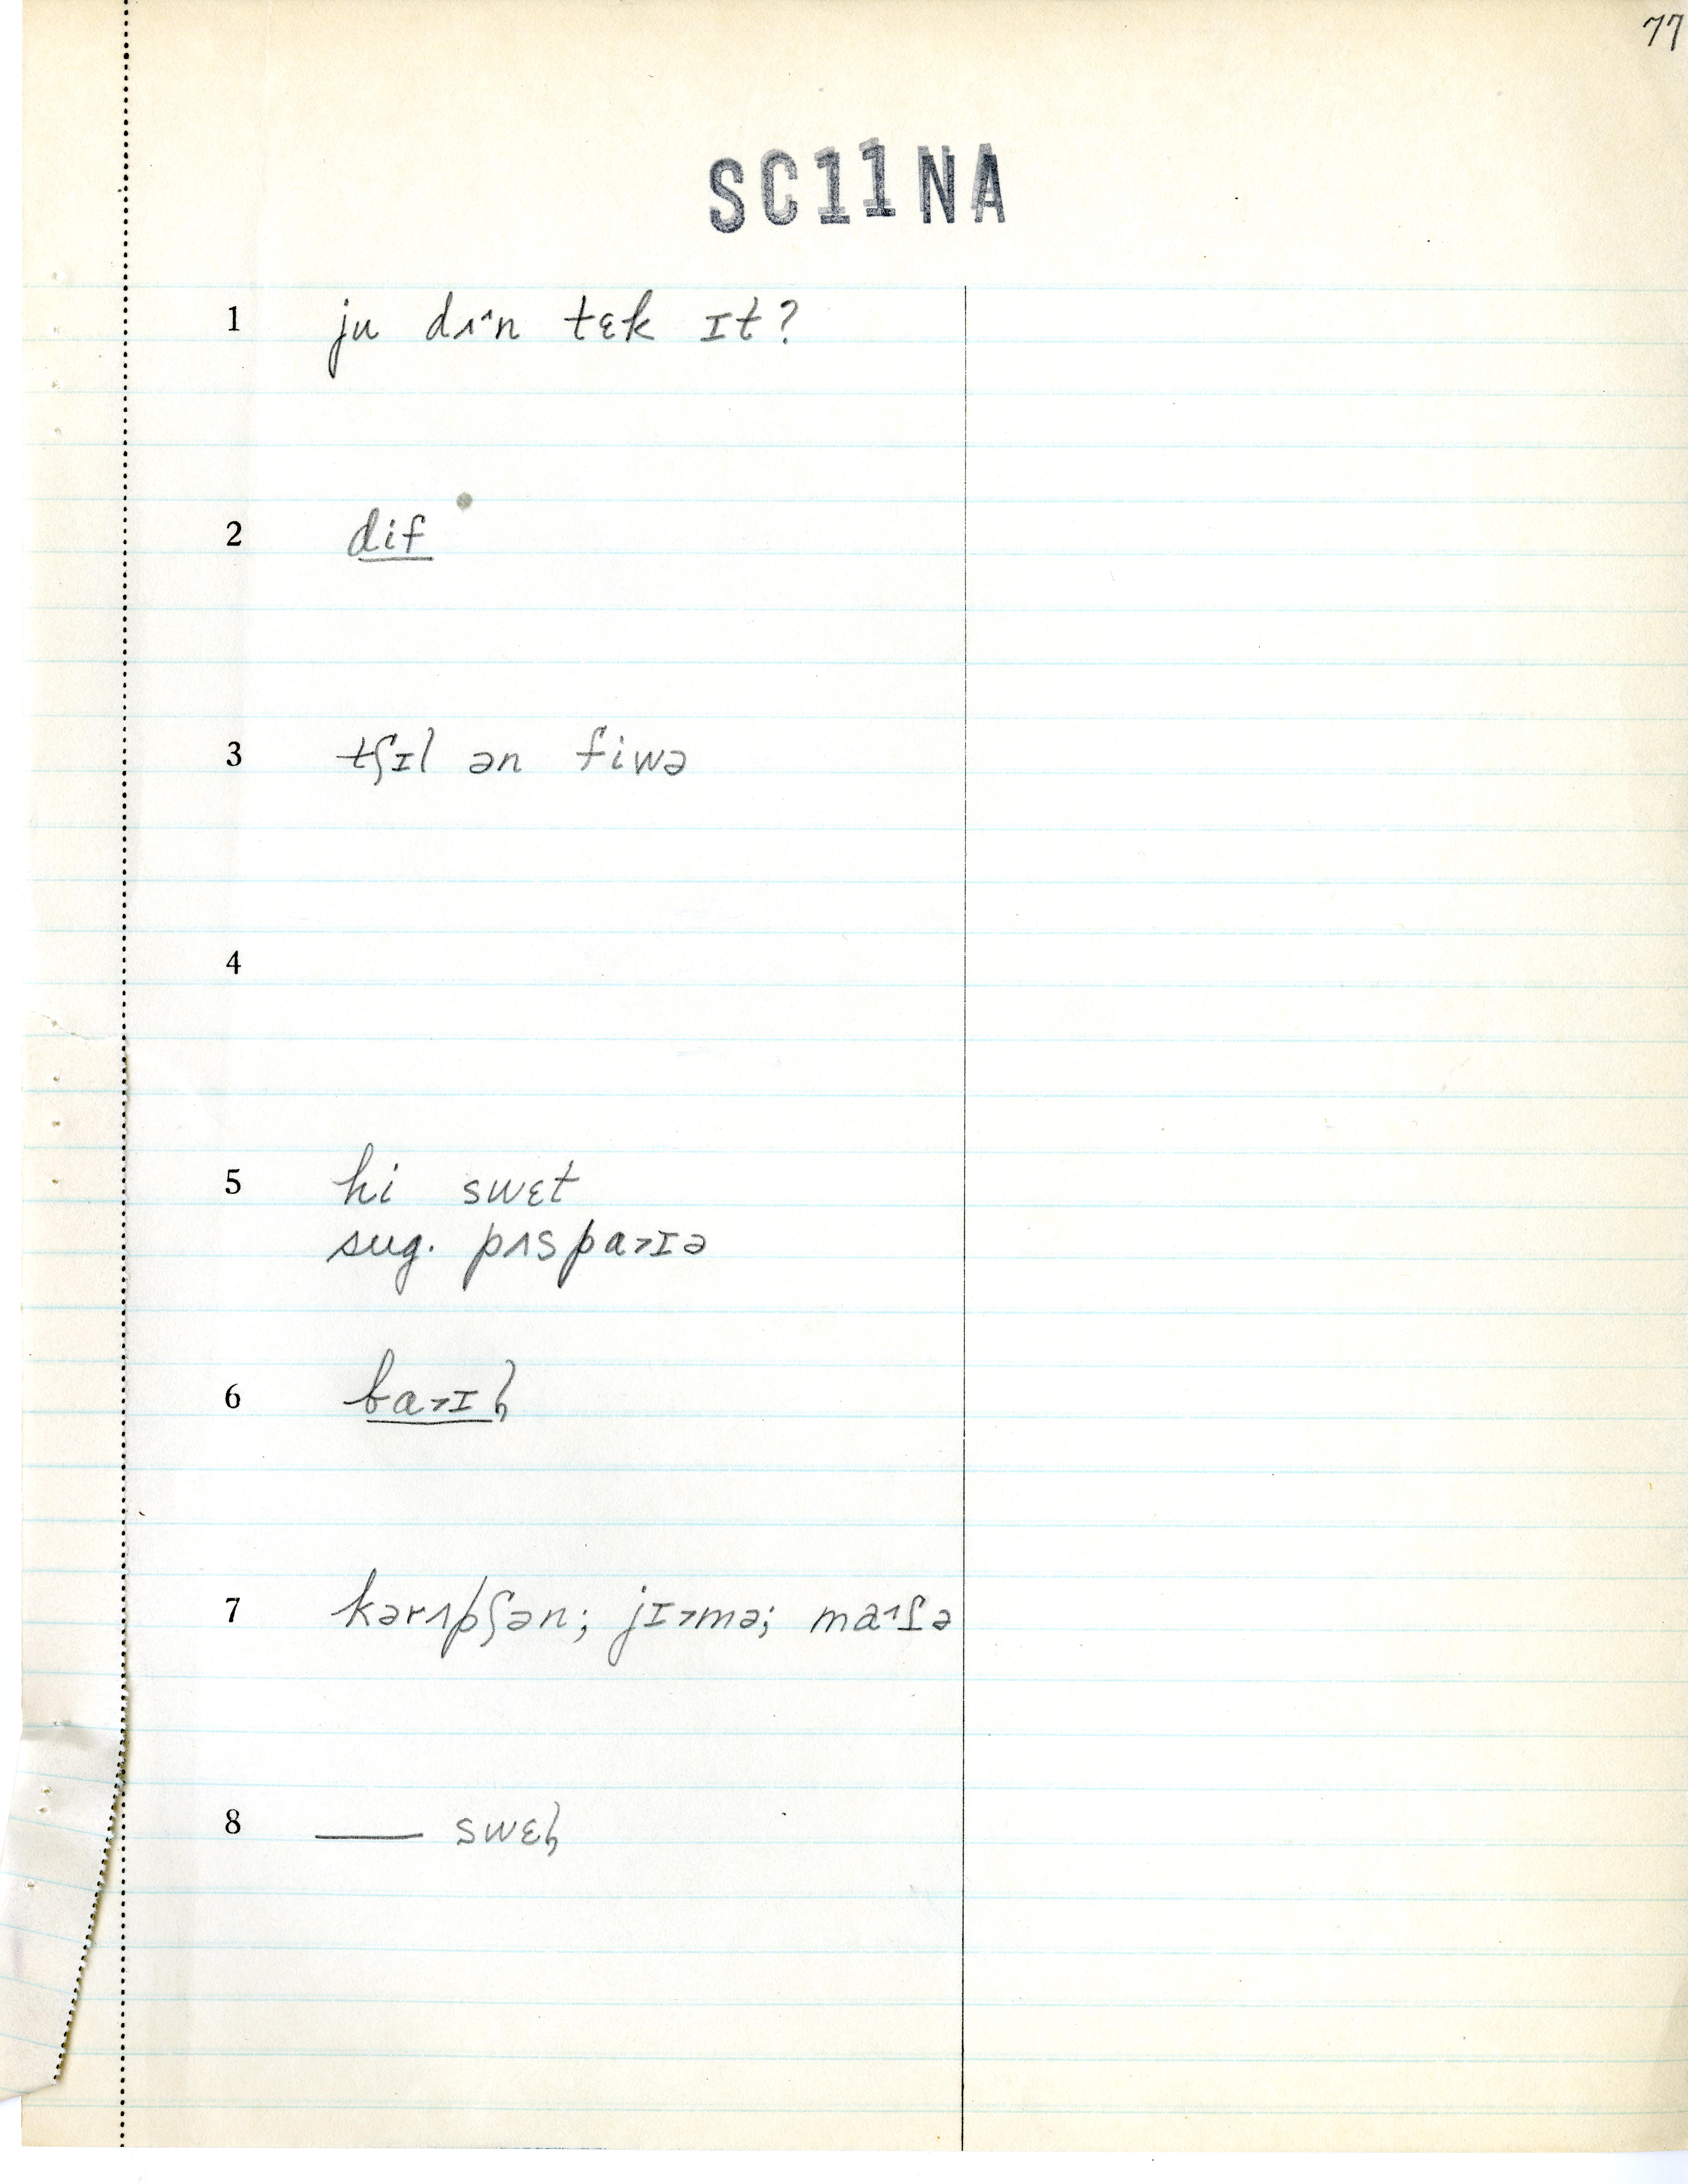 77
SC11NA
1 ju dʌ^n tɛk ɪt?
2 dif
3 tʃɪl ən fiwə
4
5 hi swɛt
sug. pʌspa˃ɪə
6 ba˃ɪl̩
7 kərʌpʃən; jɪ˃mə; ma˄ɾə
8 —— swɛl̩